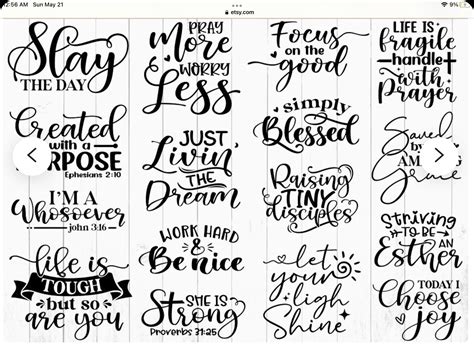 2:56 AM Sun May 21
9%
etsy.com
Slay
THE DAY
Created
with a
RPOSE
Ephesians 2:10
I'M A
Whosoever
john 3:16
life is
TOUGH
but so
are you
PRAY
More
WORRY
Less
JUST
Livin'
THE
Dream
WORK HARD
&
Be nice
SHE IS
Strong
Proverbs 31:25
Focus
on the
good
simply
Blessed
Raising
TINY
disciples
let
your
ligh
Shine
LIFE IS
fragile
handle
with
Prayer
Saved
by
AM NG
Grace
Striving
TO BE
AN
Esther
TODAY I
Choose
joy